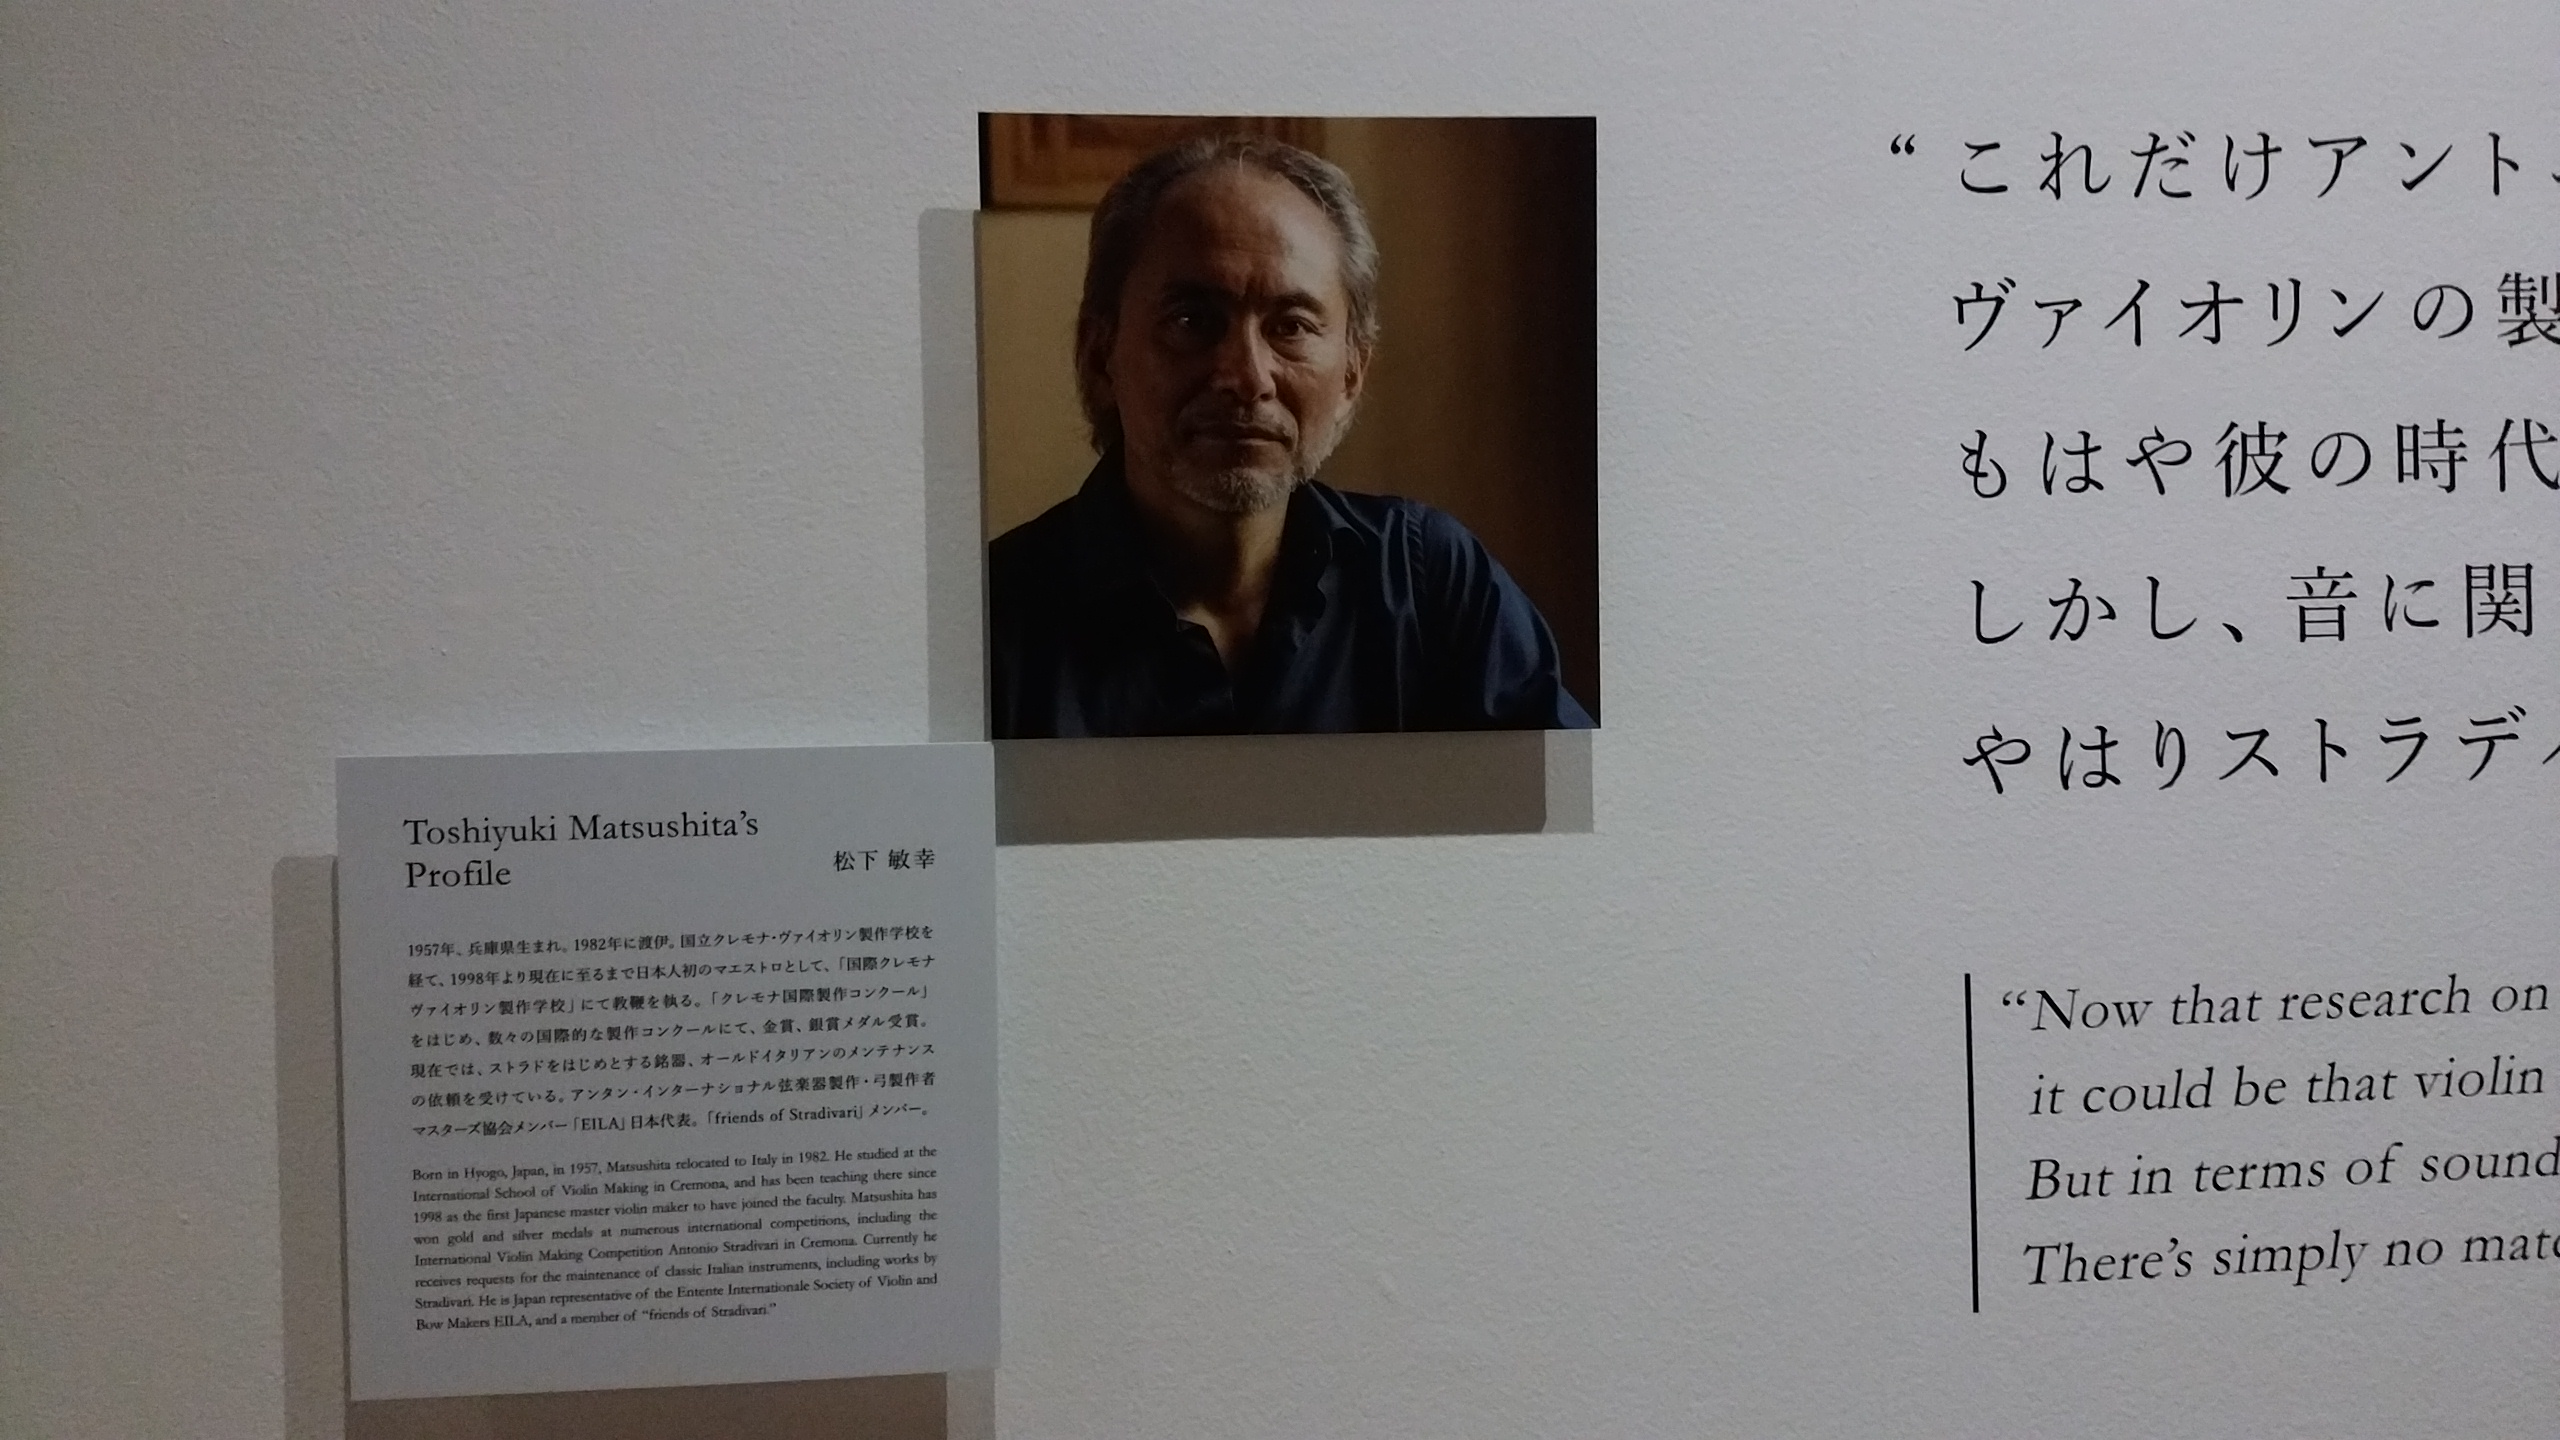 “これだけアント
ヴァイオリンの製
もはや彼の時代
しかし、音に関
やはりストラデ
“Now that research on
it could be that violin
But in terms of sound
There’s simply no
Toshiyuki Matsushita’s
Profile
松下 敏幸
1957年、兵庫県生まれ。1982年に渡伊。国立クレモナ・ヴァイオリン製作学校を
経て、1998年より現在に至るまで日本人初のマエストロとして、「国際クレモナ
ヴァイオリン製作学校」にて教鞭を執る。「クレモナ国際製作コンクール」
をはじめ、数々の国際的な製作コンクールにて、金賞、銀賞メダル受賞。
現在では、ストラドをはじめとする銘器、オールドイタリアンのメンテナンス
の依頼を受けている。アンタン・インターナショナル弦楽器製作・弓製作者
マスターズ協会メンバー「EILA」日本代表。「friends of Stradivari」メンバー。
Born in Hyogo, Japan, in 1957, Matsushita relocated to Italy in 1982. He studied at the
International School of Violin Making in Cremona, and has been teaching there since
1998 as the first Japanese master violin maker to have joined the faculty. Matsushita has
won gold and silver medals at numerous international competitions, including the
International Violin Making Competition Antonio Stradivari in Cremona. Currently he
receives requests for the maintenance of classic Italian instruments, including works by
Stradivari. He is Japan representative of the Entente Internationale Society of Violin and
Bow Makers EILA, and a member of “friends of Stradivari.”